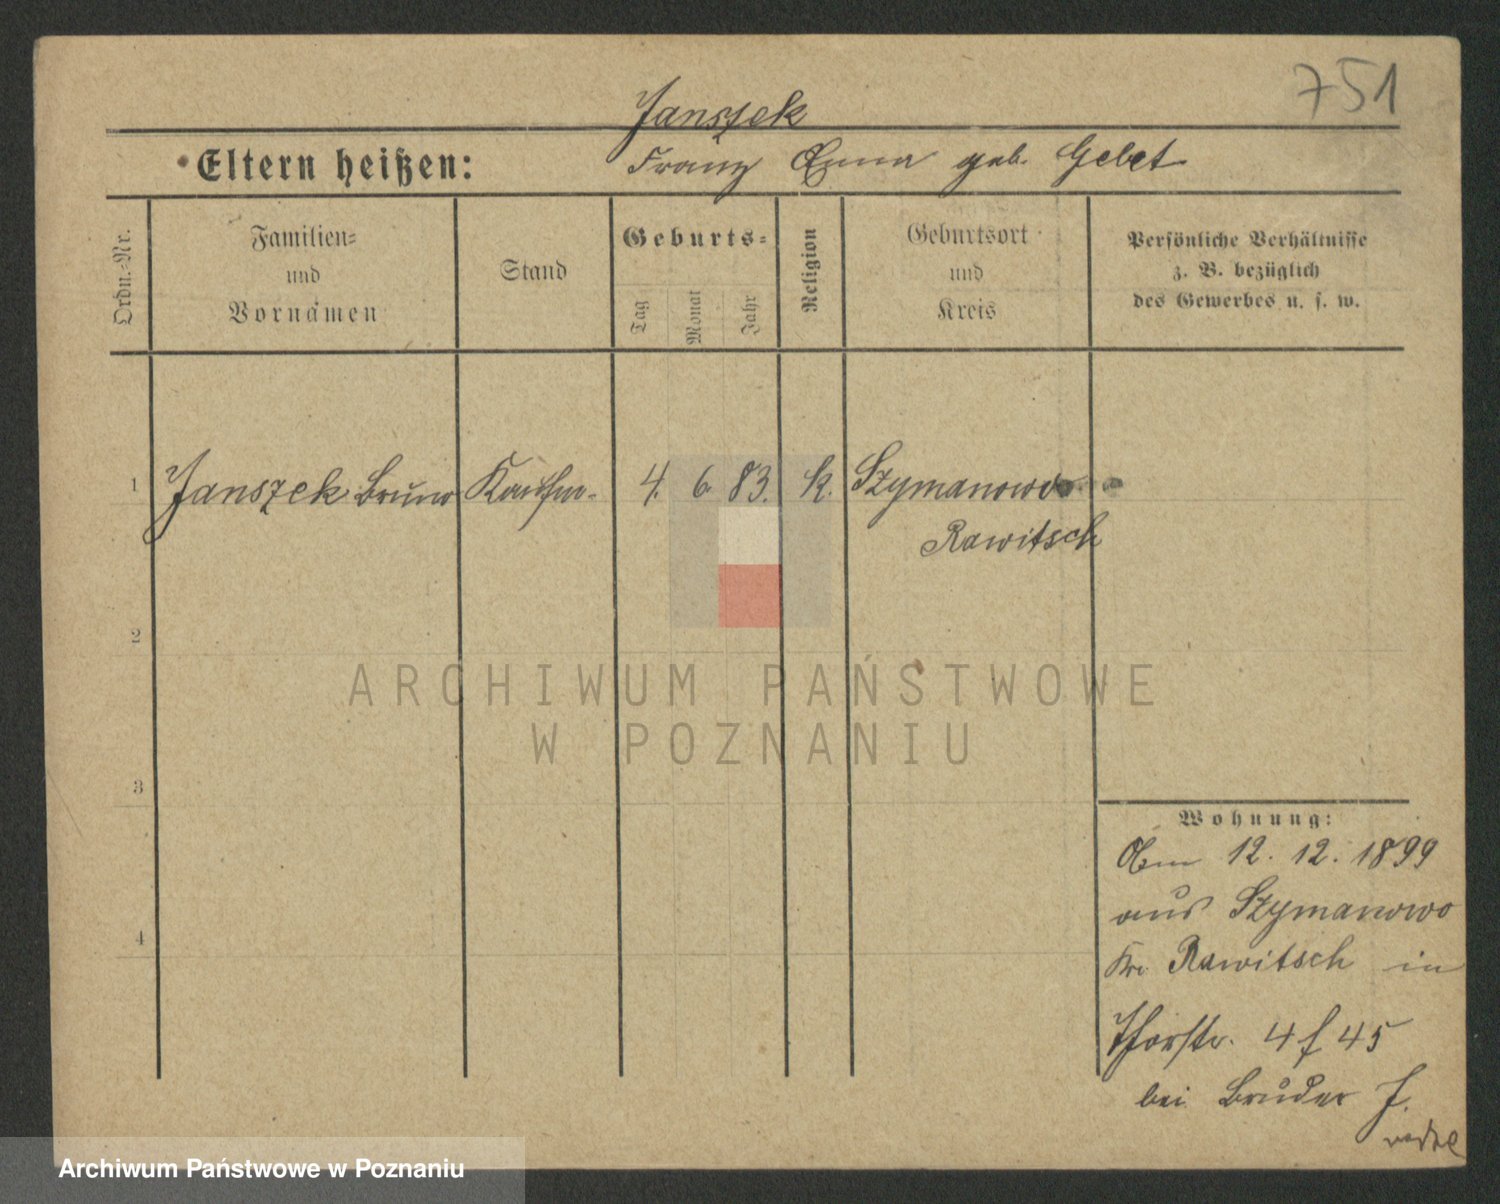 751
Janszek
Eltern heißen: Franz Anna geb. Gebet
Ordn.-Nr.
Familien-
und
Vornamen
Stand
Geburts-
Tag
Monat
Jahr
Religion
Geburtsort
und
Kreis
Persönliche Verhältnisse
z. B. bezüglich
des Gewerbes u. s. w.
1 Janszek Bruno Kaufm. 4. 6 83. k. Szymanowo
Rawitsch
2
3
4
Wohnung:
Am 12. 12. 1899
aus Szymanowo
Kr. Rawitsch in
4 f 45
bei Bruder J.
ARCHIWUM PAŃSTWOWE
W POZNANIU
Archiwum Państwowe w Poznaniu